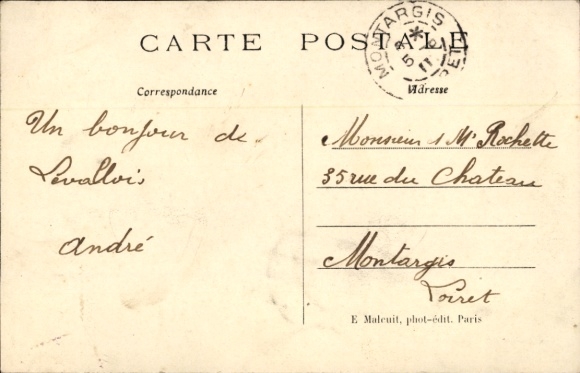 CARTE POSTALE
MONTARGIS
Correspondance
Adresse
Un bonjour de
Levallois
André
Monsieur & Me Rochette
35 rue du Chateau
Montargis
Loiret
E Maleuit, phot-édit. Paris